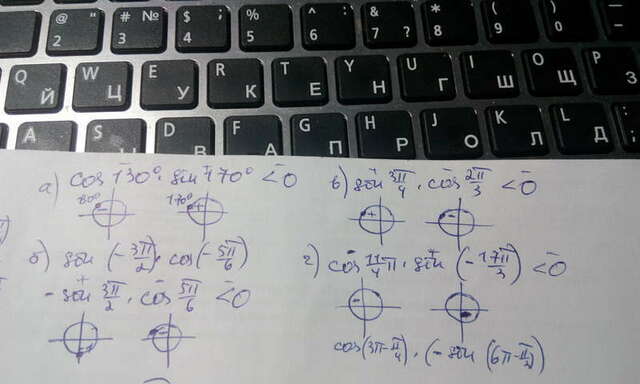 @ " № # ; $ : % ^ ? & * ( ) _
2 3 4 5 6 7 8 9 0 -
Q Й W Ц E У R К T Е Y Н U Г I Ш O Щ P З
A S Ы D В F А G П H Р J О K Л L Д
а) cos 130°. sin 170° < 0
130° 170°
б) sin (-3π/2). cos (-5π/6)
- sin 3π/2 . cos 5π/6 < 0
в) sin 3π/4 . cos 2π/3 < 0
г) cos 11/4 π . sin (-17π/3) < 0
cos (3π - π/4) . (- sin (6π - π/3))